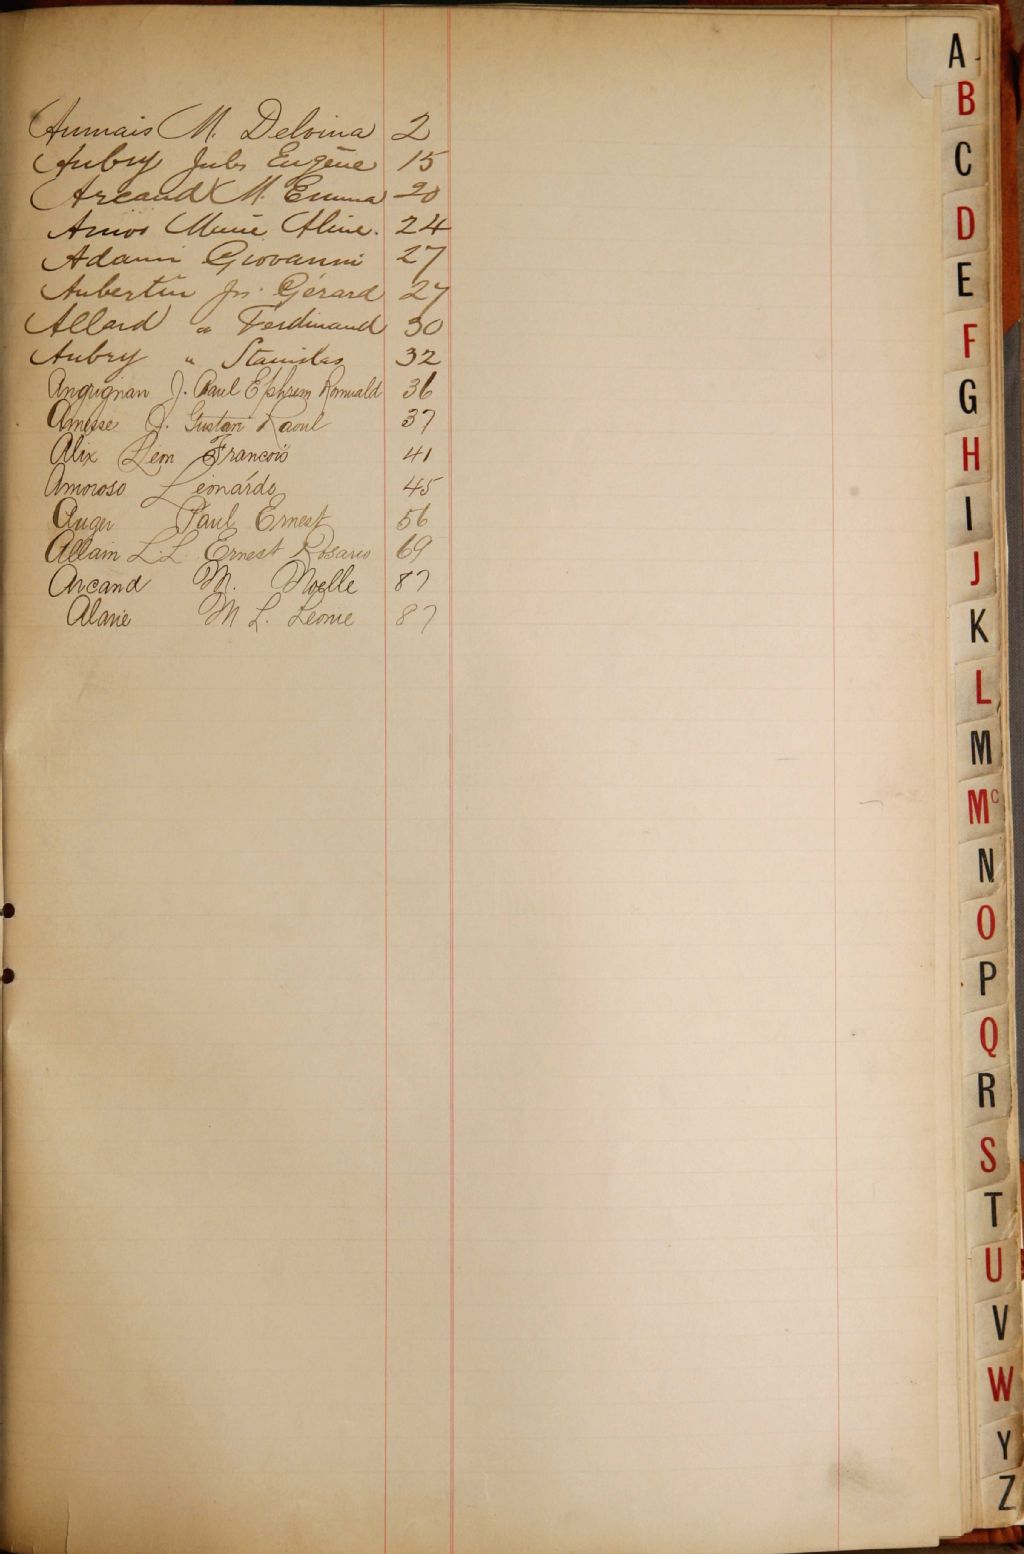 Aumais M. Delvina 2
Aubry Jules Eugène 15
Arcand M. Emma 20
Amos Marie Aline. 24
Adami Giovanni 27
Aubertin Js. Gérard 27
Allard " Ferdinand 30
Aubry " Stanislas 32
Angrignan J. Paul Ephrem Romuald 36
Amesse J. Gustave Raoul 37
Alix Léon François 41
Amoroso Léonardo 45
Auger Paul Ernest 56
Allain L.L. Ernest Rosario 69
Arcand M. Noelle 87
Alarie M L. Léonie 87
A
B
C
D
E
F
G
H
I
J
K
L
M
Mc
N
O
P
Q
R
S
T
U
V
W
Y
Z